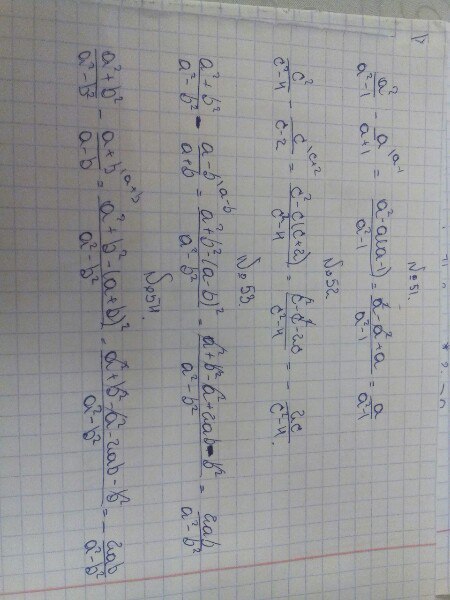 №51.
a²/a²-1 - a/a+1 |a-1 = a²-a(a-1)/a²-1 = a²-a²+a/a²-1 = a/a²-1
№52.
c²/c²-4 - c/c-2 |c+2 = c²-c(c+2)/c²-4 = c²-c²-2c/c²-4 = - 2c/c²-4.
№53.
a²+b²/a²-b² - a-b/a+b |a-b = a²+b²-(a-b)²/a²-b² = a²+b²-a²+2ab-b²/a²-b² = 2ab/a²-b²
№54.
a²+b²/a²-b² - a+b/a-b |a+b = a²+b²-(a+b)²/a²-b² = a²+b²-a²-2ab-b²/a²-b² = - 2ab/a²-b²